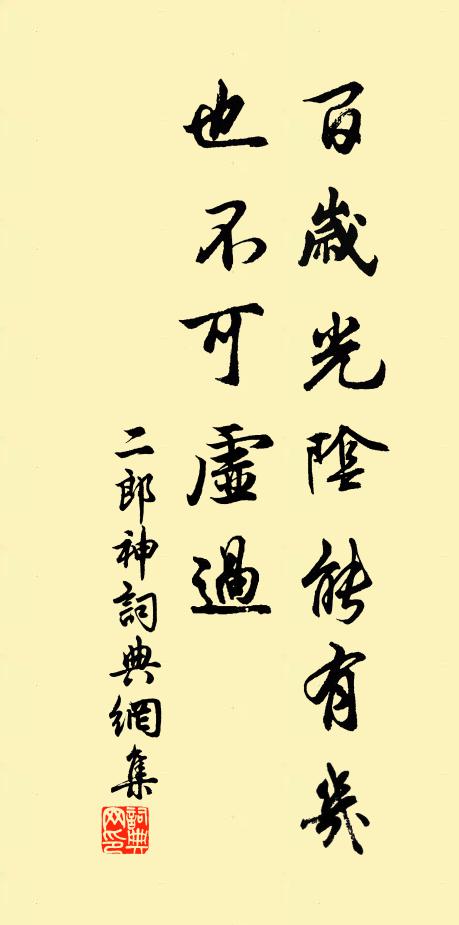 百歲光陰能有幾
也不可虛過
二郎神詞典網集
詞典网印